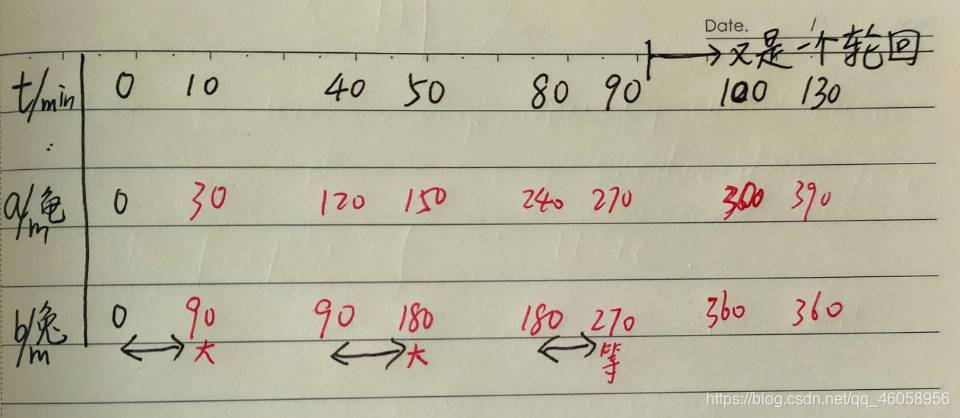 Date.
→又是一个轮回
t/min 0 10 40 50 80 90 100 130
a/m龟 0 30 120 150 240 270 300 390
b/m兔 0 90 90 180 180 270 360 360
大 大 等
https://blog.csdn.net/qq_46058956